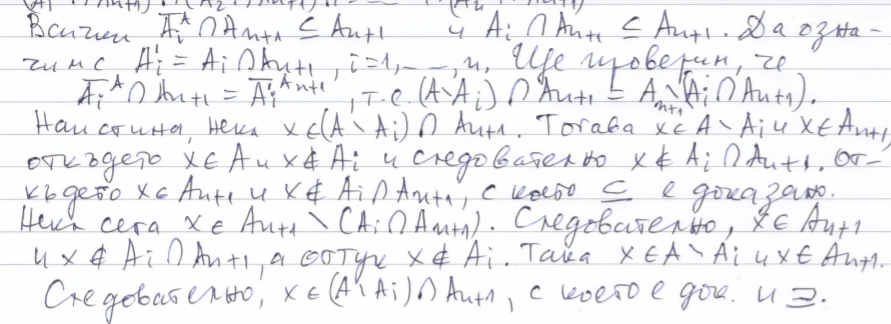 Всички A̅ᵢᴬ ∩ Aₙ₊₁ ⊆ Aₙ₊₁ и Aᵢ ∩ Aₙ₊₁ ⊆ Aₙ₊₁. Да озна-
чим с Aᵢ' = Aᵢ ∩ Aₙ₊₁, i=1,...,n. Ще проверим, че
A̅ᵢᴬ ∩ Aₙ₊₁ = A̅ᵢ'^Aₙ₊₁, т.е. (A∖Aᵢ) ∩ Aₙ₊₁ = Aₙ₊₁∖(Aᵢ ∩ Aₙ₊₁).
Наистина, нека x∈(A∖Aᵢ) ∩ Aₙ₊₁. Тогава x∈A∖Aᵢ и x∈Aₙ₊₁,
откъдето x∈A и x∉Aᵢ и следователно x∉Aᵢ∩Aₙ₊₁. От-
където x∈Aₙ₊₁ и x∉Aᵢ∩Aₙ₊₁, с което ⊆ е доказано.
Нека сега x∈Aₙ₊₁∖(Aᵢ∩Aₙ₊₁). Следователно, x∈Aₙ₊₁
и x∉Aᵢ∩Aₙ₊₁, а оттук x∉Aᵢ. Така x∈A∖Aᵢ и x∈Aₙ₊₁.
Следователно, x∈(A∖Aᵢ)∩Aₙ₊₁, с което е док. и ⊇.